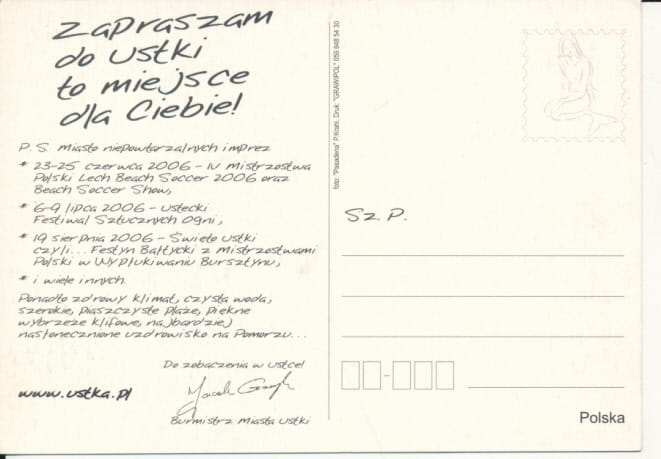 Zapraszam
do Ustki
to miejsce
dla Ciebie!
P.S. Miasto niepowtarzalnych imprez
* 23-25 czerwca 2006 - IV Mistrzostwa
Polski Lech Beach Soccer 2006 oraz
Beach Soccer Show,
* 6-9 lipca 2006 - Ustecki
Festiwal Sztucznych Ogni,
* 19 sierpnia 2006 - Święto Ustki
czyli... Festyn Bałtycki z Mistrzostwami
Polski w Wypłukiwaniu Bursztynu,
* i wiele innych.
Ponadto zdrowy klimat, czysta woda,
szerokie, piaszczyste plaże, piękne
wybrzeże klifowe, najbardziej
nasłonecznione uzdrowisko na Pomorzu...
Do zobaczenia w Ustce!
www.ustka.pl
Jacek
Burmistrz Miasta Ustki
foto: "Pasadena" P.Krahl, Druk: "GRAWIPOL" 059 848 54 30
Sz.P.
Polska